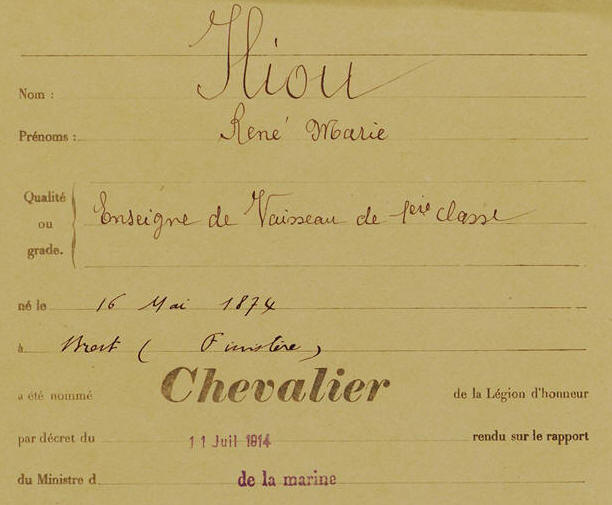 Nom : Hiou
Prénoms : René Marie
Qualité ou grade. Enseigne de Vaisseau de 1ère classe
né le 16 Mai 1874
à Brest (Finistère)
a été nommé Chevalier de la Légion d'honneur
par décret du 11 Juil 1914 rendu sur le rapport
du Ministre d de la marine